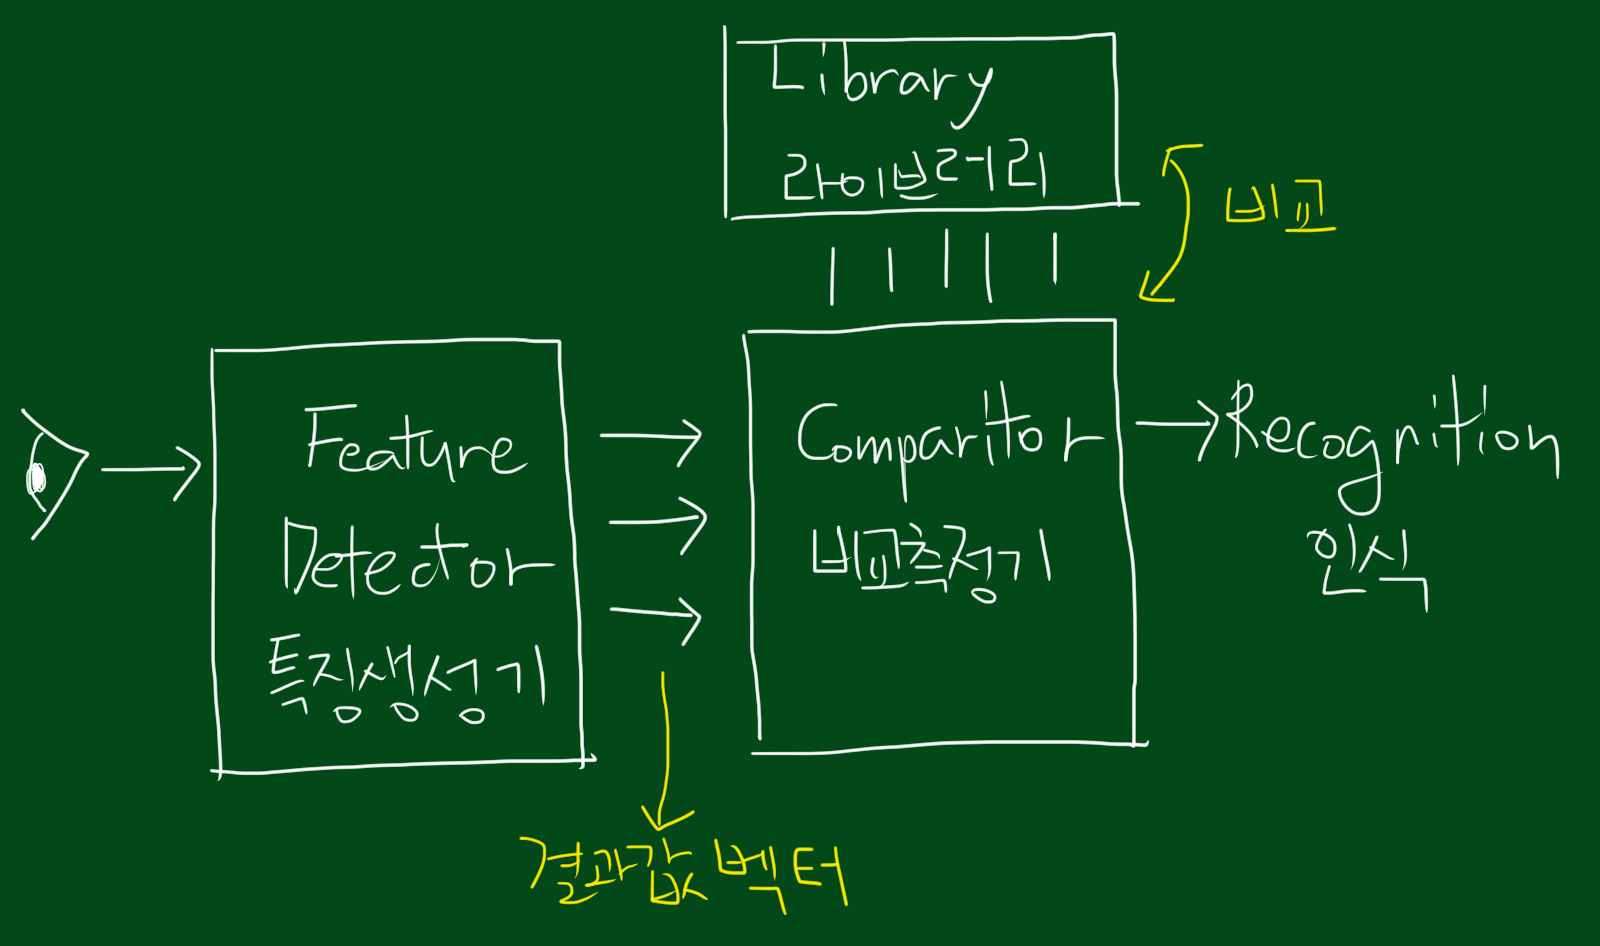 Library
라이브러리
비교
Feature
Detector
특징생성기
Comparitor
비교측정기
Recognition
인식
결과값 벡터